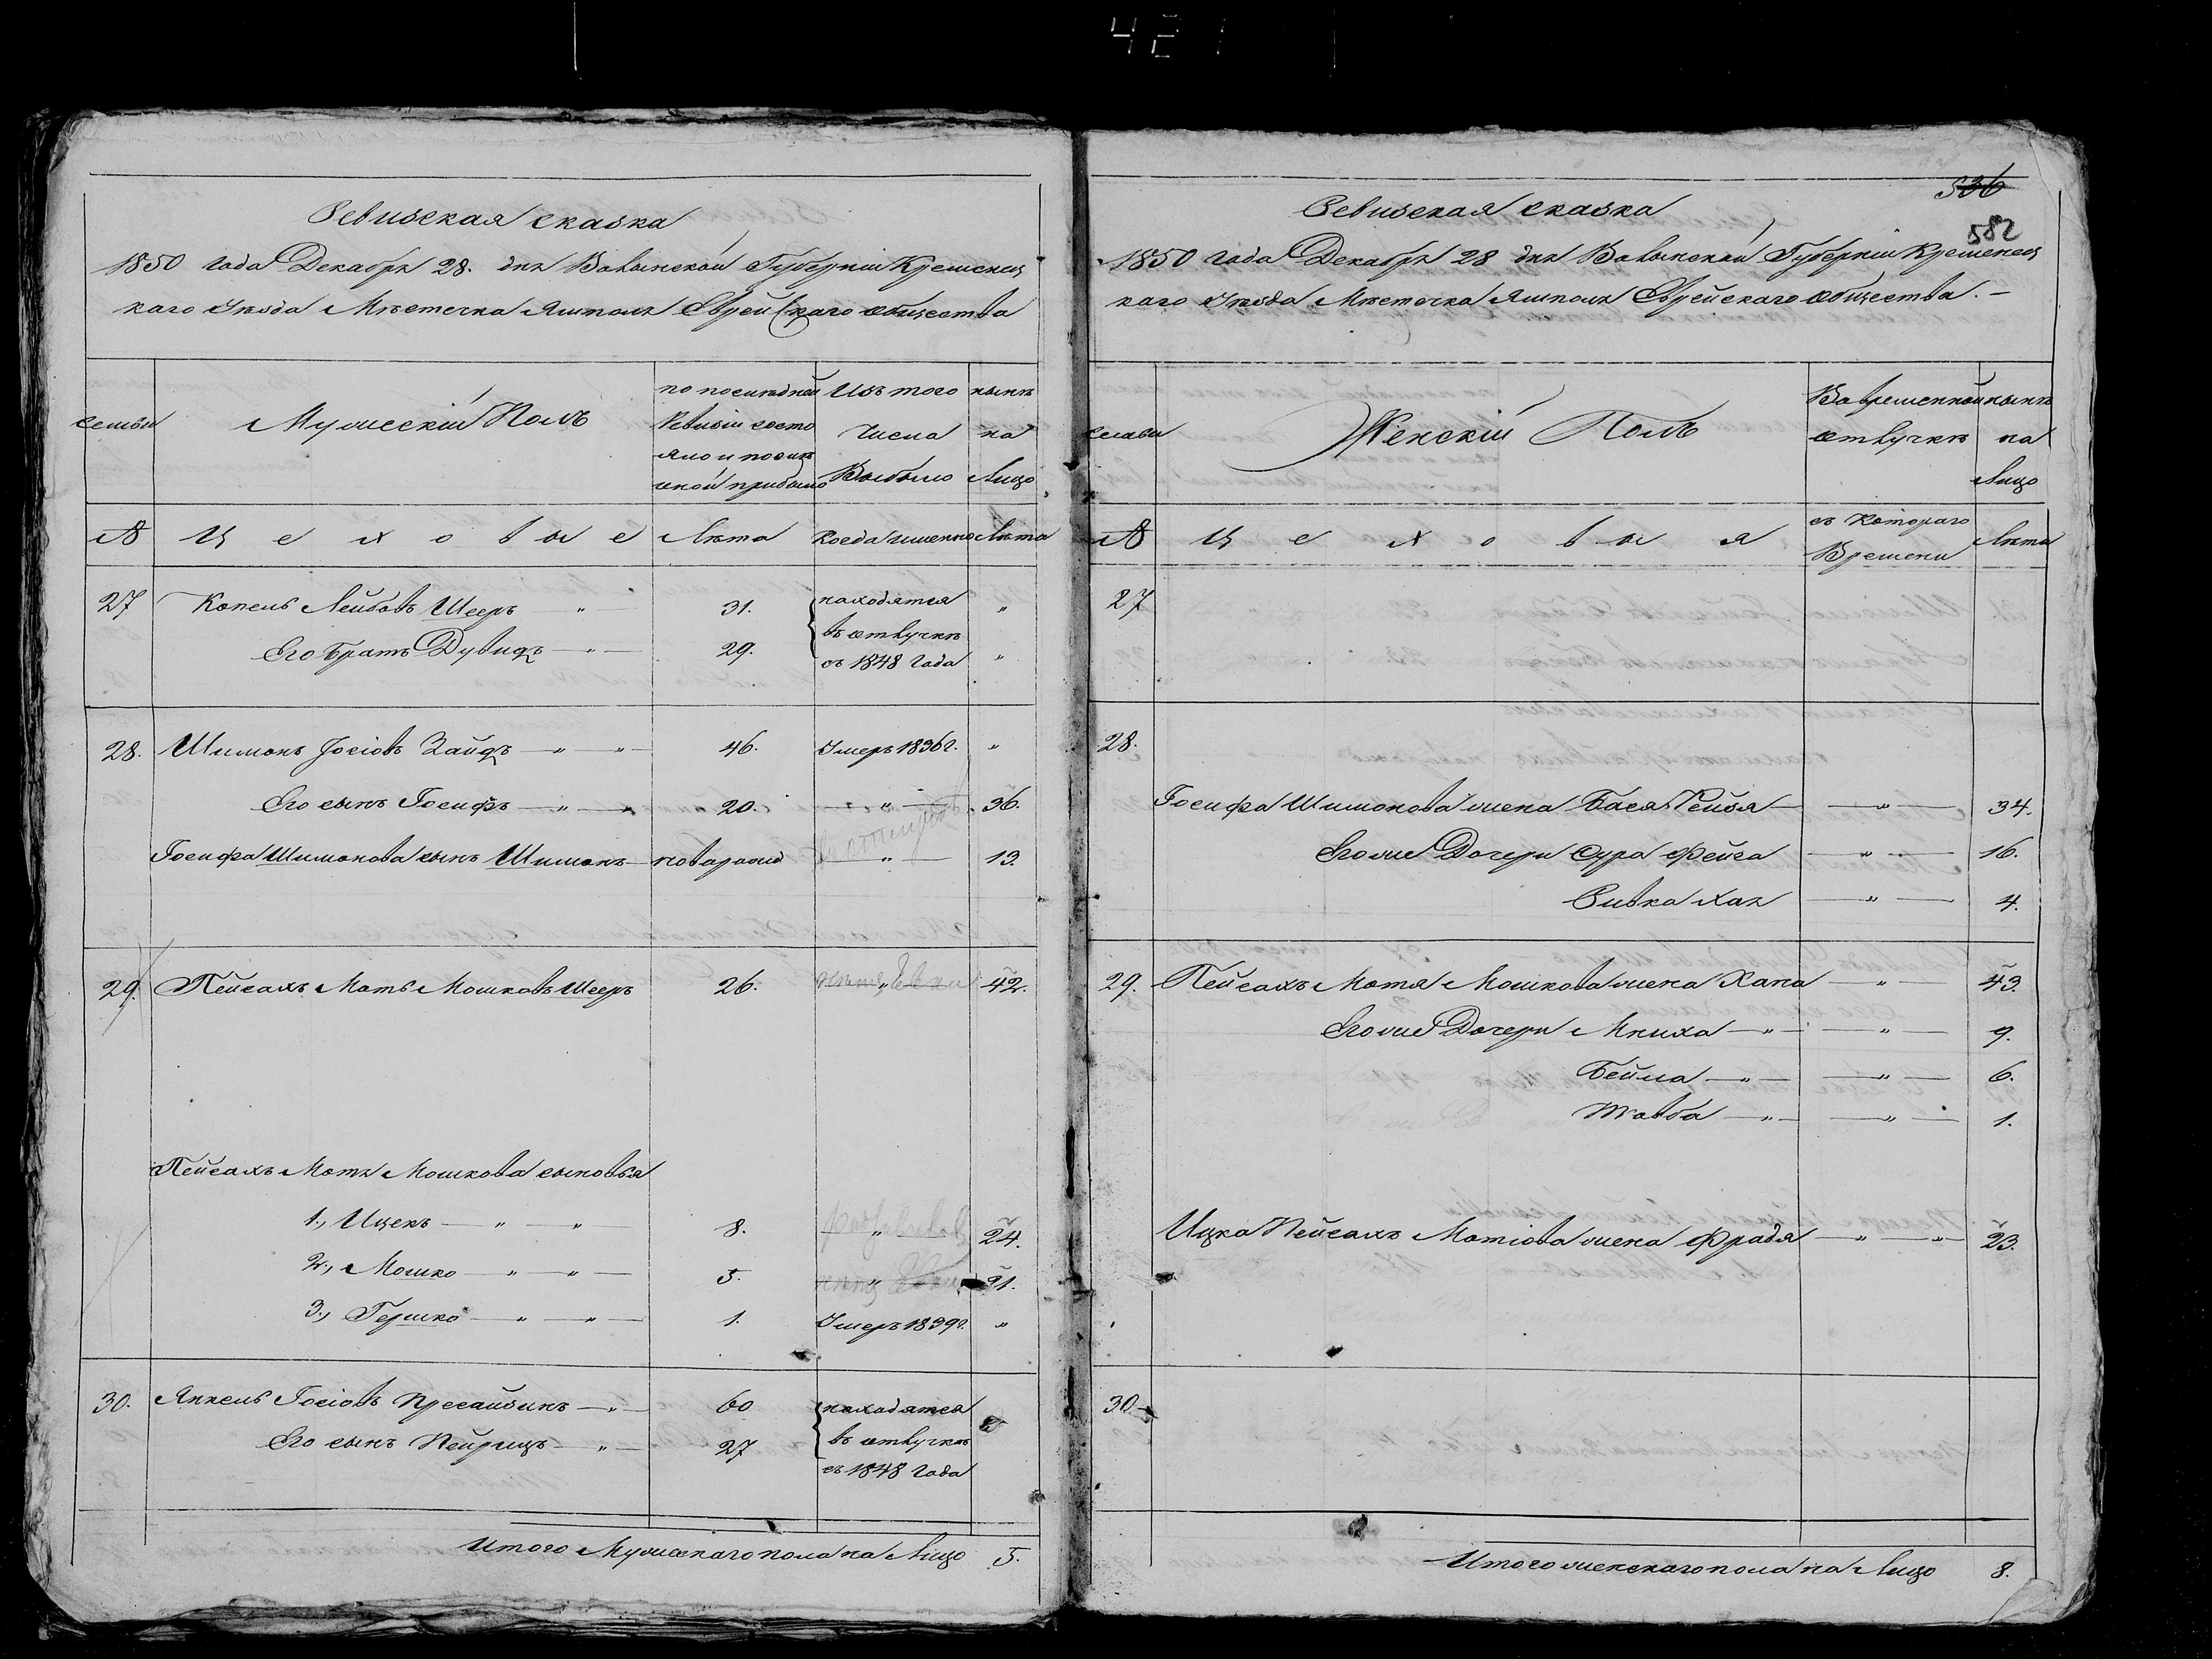 421
Ревизская сказка
1850 года Декабря 28. дня Волынской Губерніи Кременец
каго Уѣзда Мѣстечка Ямполя Еврейскаго общества
семьи
Мужескій Полъ
по послѣдней
Ревизіи состо
яло и послѣ
оной прибыло
Изъ того
Числа
Выбыло
нынѣ
на
Лицо
№
Ц е х о в ы е
Лѣта
Когда именно
Лѣта
27 Копель Лейбовъ Шееръ „ 31. находятся „
Его братъ Дувидъ — „ — 29. въ отлучкѣ „
съ 1848 года
28. Шимонъ Іосіовъ Зайдъ — „ „ — 46. Умеръ 1836г. „
Его сынъ Іосифъ — „ — 20. — „ — 36.
Іосифа Шимонова сынъ Шимонъ — новорожд — „ — 13.
29. Пейсахъ Моть Мошковъ Шееръ 26. „ 42.
Пейсахъ Мотя Мошкова сыновья
1., Ицекъ — „ — „ — 8. „ 24.
2., Мошко — „ — „ — 5. „ 21.
3., Гершко — „ — „ — 1. Умеръ 1839г. „
30. Янкель Іосіовъ — „ — 60 находятся
Его сынъ — „ — 27 въ отлучкѣ
съ 1848 года
Итого Мужескаго пола на Лицо 5.
536
582
Ревизская сказка
1850 года Декабря 28 дня Волынской Губерніи Кременец
каго Уѣзда Мѣстечка Ямполя Еврейскаго общества. —
семьи
Женскій Полъ
Во временной
отлучкѣ
нынѣ
на
Лицо
№
Ц е х о в ы я
съ Котораго
Времени
Лѣта
27
28.
Іосифа Шимонова жена Бася Рейзя — — „ — 34.
Его же Дочери Сура Фейга — „ — 16.
Ривка Хая — „ — 4.
29. Пейсахъ Мотя Мошкова жена Хана — „ — 43.
Его же Дочери Мниха — „ — — „ — 9.
Бейла — „ — — „ — 6.
Товба — „ — — „ — 1.
Ицка Пейсахъ Мотіова жена Фрадя — „ — „ 23.
30
Итого женскаго пола на Лицо 8.